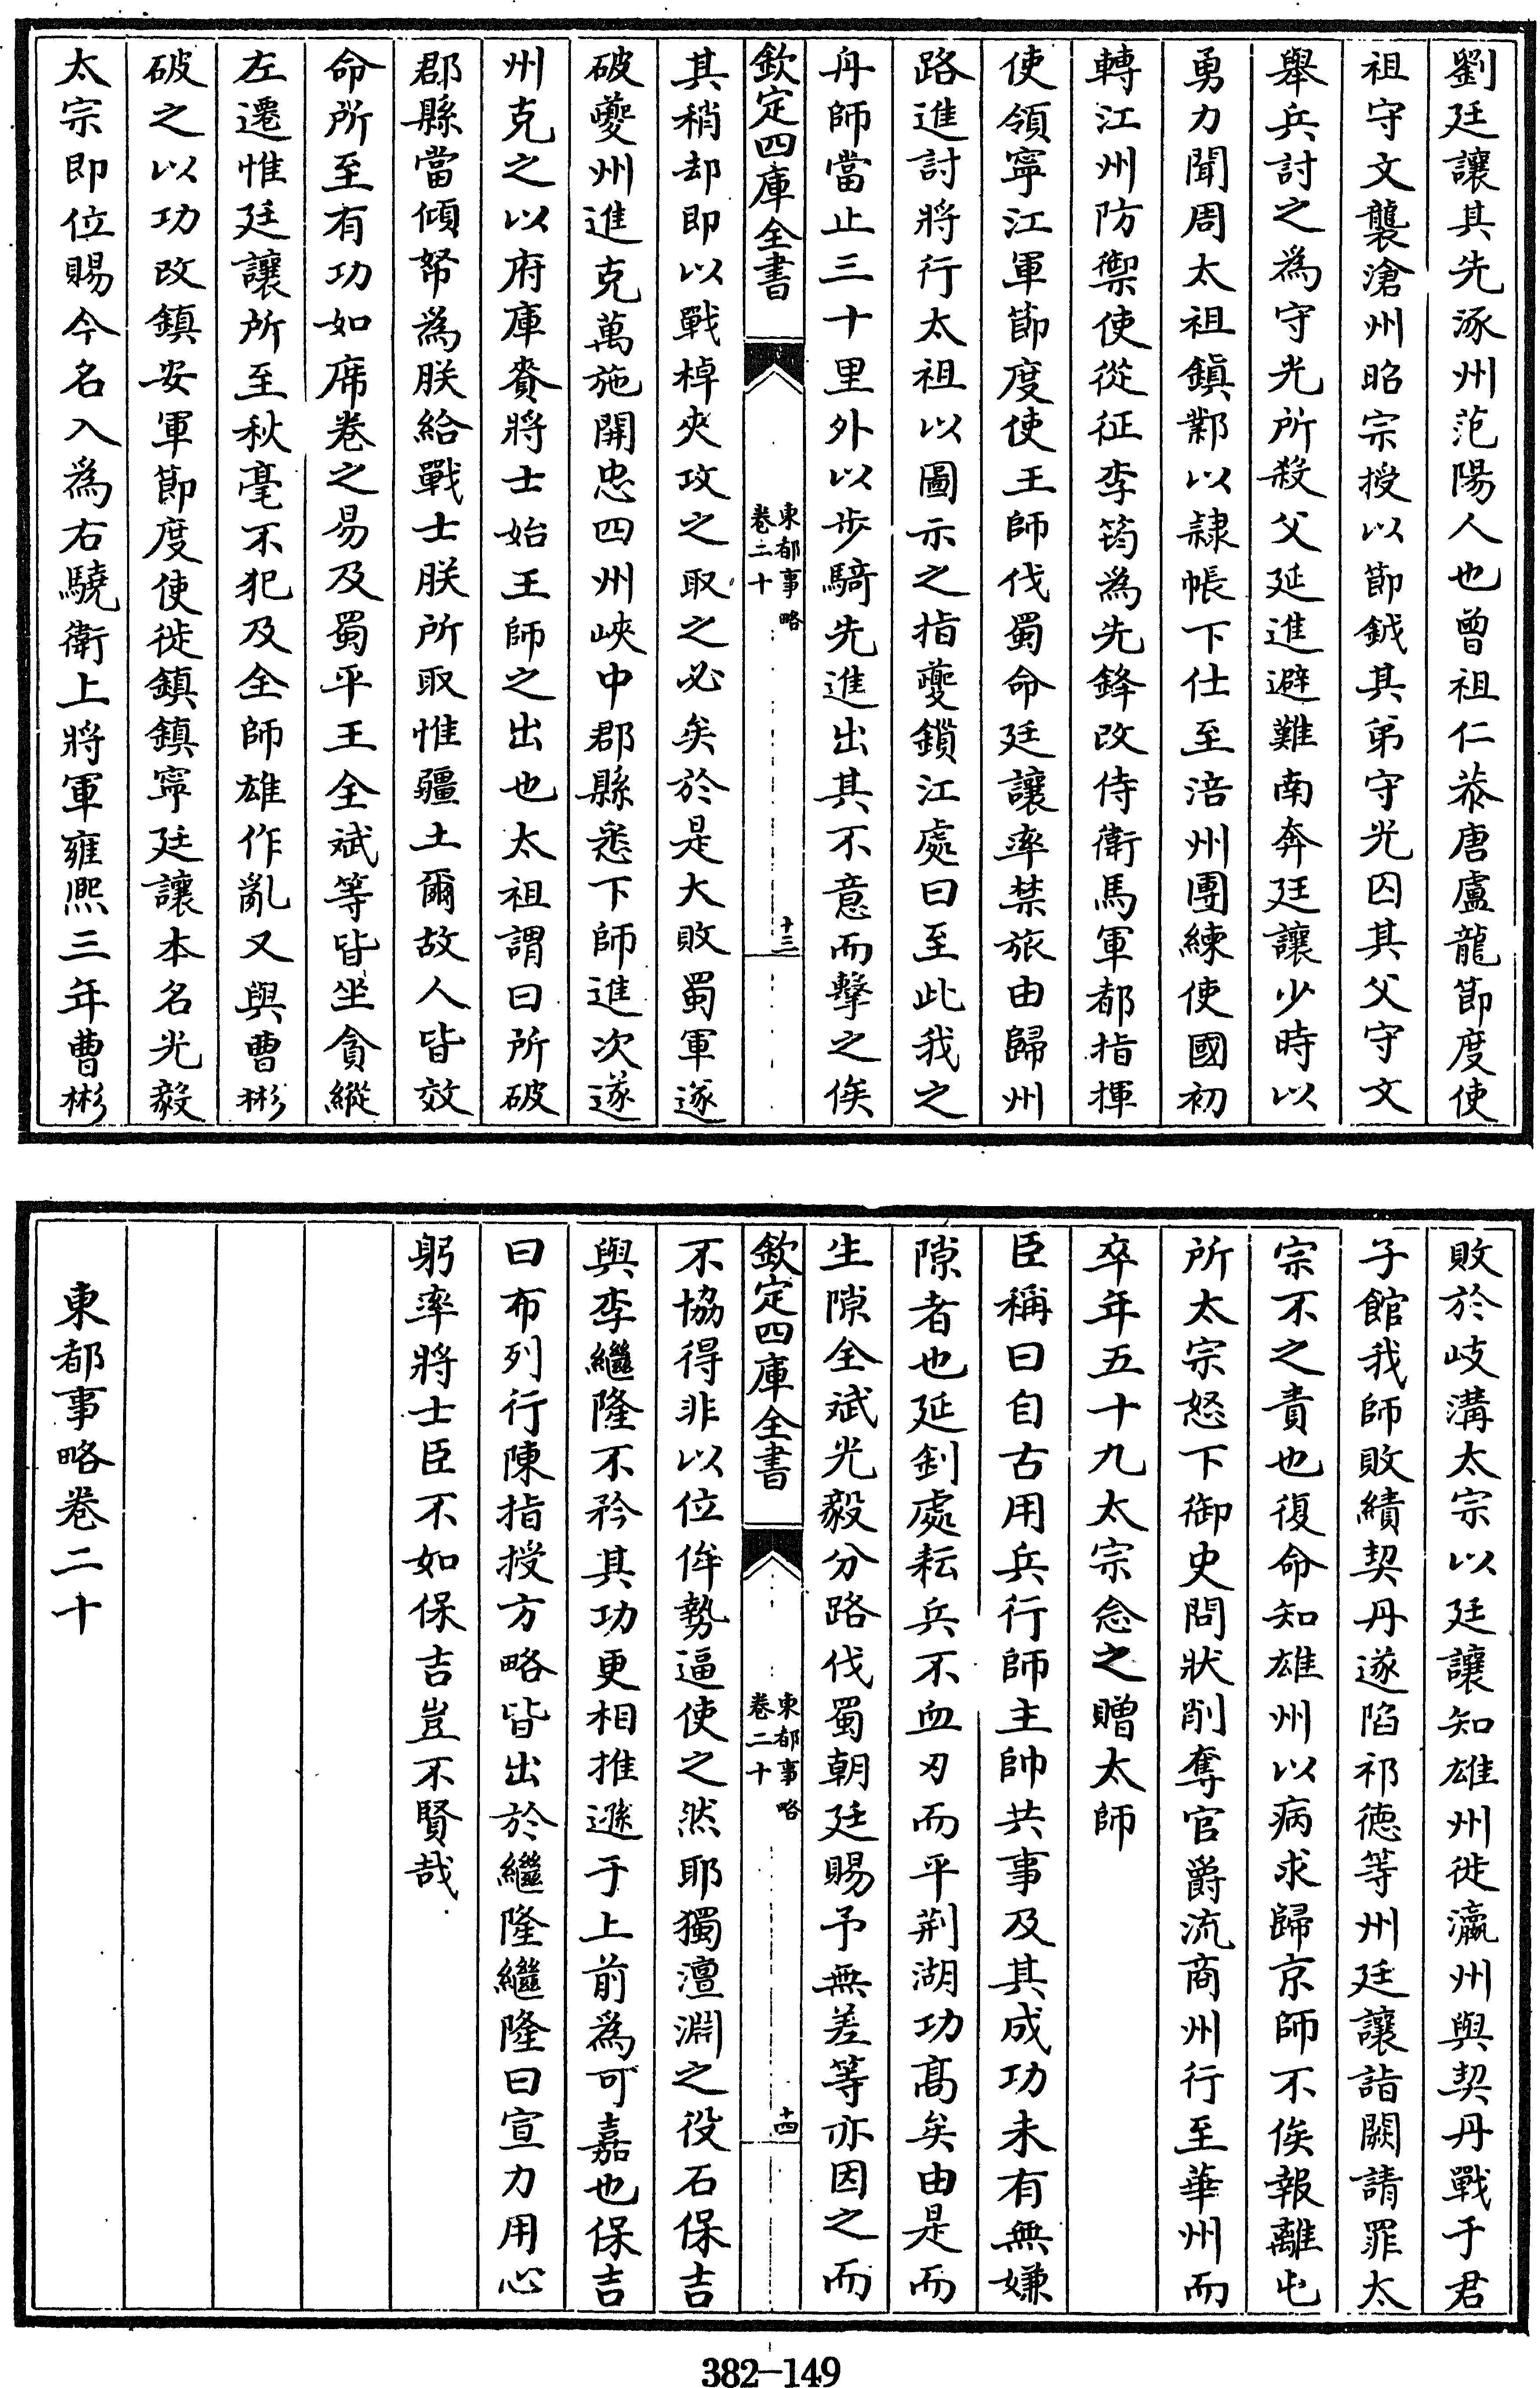 劉廷讓其先涿州范陽人也曾祖仁恭唐盧龍節度使
祖守文襲滄州昭宗授以節鉞其弟守光囚其父守文
舉兵討之為守光所殺父延進避難南奔廷讓少時以
勇力聞周太祖鎮鄴以隷帳下仕至涪州團練使國初
轉江州防禦使從征李筠為先鋒改侍衛馬軍都指揮
使領寧江軍節度使王師伐蜀命廷讓率禁旅由歸州
路進討將行太祖以圖示之指夔鎖江處曰至此我之
舟師當止三十里外以步騎先進出其不意而擊之俟
欽定四庫全書
東都事略
卷二十
十三
其稍却即以戰棹夾攻之取之必矣於是大敗蜀軍遂
破夔州進克萬施開忠四州峽中郡縣悉下師進次遂
州克之以府庫賫將士始王師之出也太祖謂曰所破
郡縣當傾帑為朕給戰士朕所取惟疆土爾故人皆效
命所至有功如席卷之易及蜀平王全斌等皆坐貪縱
左遷惟廷讓所至秋毫不犯及全師雄作亂又與曹彬
破之以功改鎮安軍節度使徙鎮鎮寧廷讓本名光毅
太宗即位賜今名入為右驍衛上將軍雍熙三年曹彬
敗於岐溝太宗以廷讓知雄州徙瀛州與契丹戰于君
子館我師敗績契丹遂陷祁德等州廷讓詣闕請罪太
宗不之責也復命知雄州以病求歸京師不俟報離屯
所太宗怒下御史問狀削奪官爵流商州行至華州而
卒年五十九太宗念之贈太師
臣稱曰自古用兵行師主帥共事及其成功未有無嫌
隙者也延釗處耘兵不血刃而平荆湖功髙矣由是而
生隙全斌光毅分路伐蜀朝廷賜予無差等亦因之而
欽定四庫全書
東都事略
卷二十
十四
不協得非以位侔勢逼使之然耶獨澶淵之役石保吉
與李繼隆不矜其功更相推遜于上前為可嘉也保吉
曰布列行陳指授方略皆出於繼隆繼隆曰宣力用心
躬率將士臣不如保吉豈不賢哉
東都事略卷二十
382-149